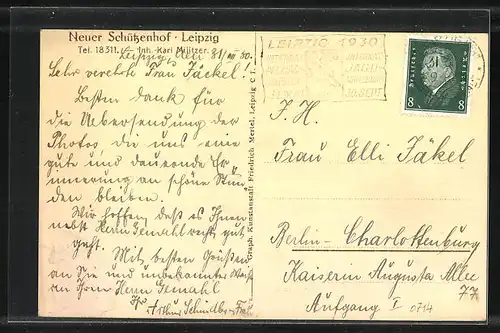 Neuer Schützenhof · Leipzig
Tel. 18311. Inh. Karl Militzer.
Leipzig, den 31/III 30.
Sehr verehrte Frau Jäckel!
Besten Dank für
die Uebersendung der
Photos, die uns eine
gute und dauernde Er
innerung an schöne Stun
den bleiben.
Wir hoffen, daß es Ihnen
nebst Herrn Gemahl recht gut
geht.
Mit besten Grüßen
an Sie und unbekannter Weise
an Ihren Herrn Gemahl
Ihr
Arthur Schindler
Graph. Kunstanstalt Friedrich Mertel, Leipzig C 1.
LEIPZIG 1930
JAGD
Deutsches Reich
8 8
F. H.
Frau Elli Jäkel
Berlin-Charlottenburg
Kaiserin Augusta Allee
77
Aufgang I
0714